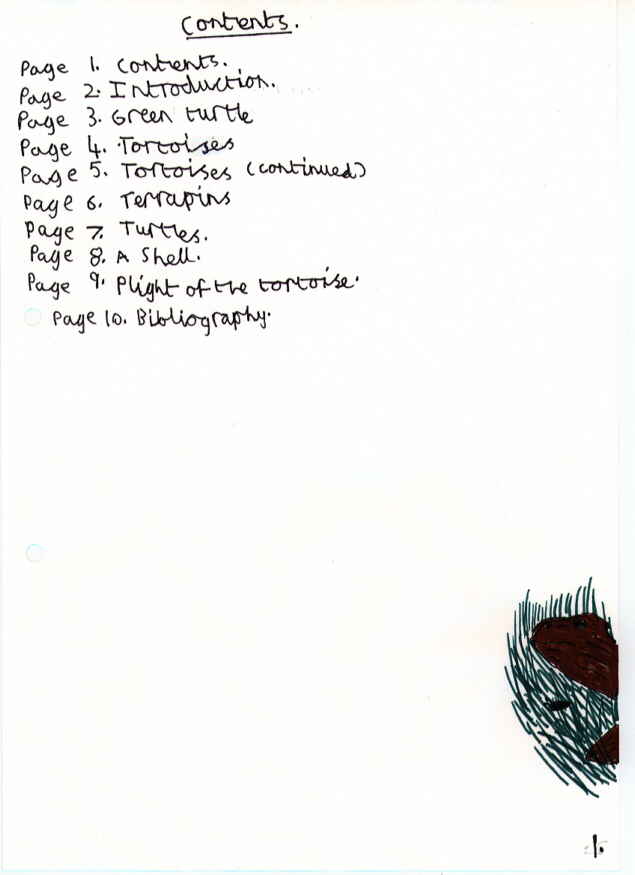 Contents.
Page 1. Contents.
Page 2. Introduction.
Page 3. Green turtle
Page 4. Tortoises
Page 5. Tortoises (continued)
Page 6. Terrapins
Page 7. Turtles.
Page 8. A Shell.
Page 9. Plight of the tortoise.
Page 10. Bibliography.
1.